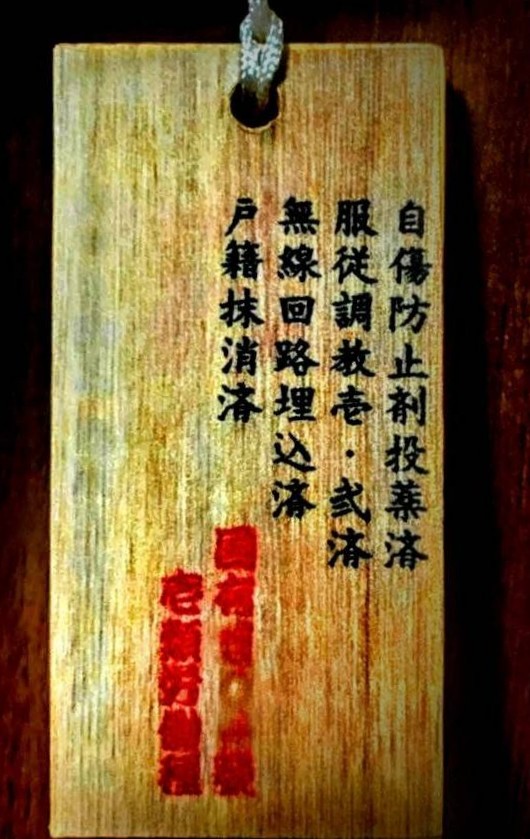 自傷防止剤投薬済
服従調教壱・弐済
無線回路埋込済
戸籍抹消済